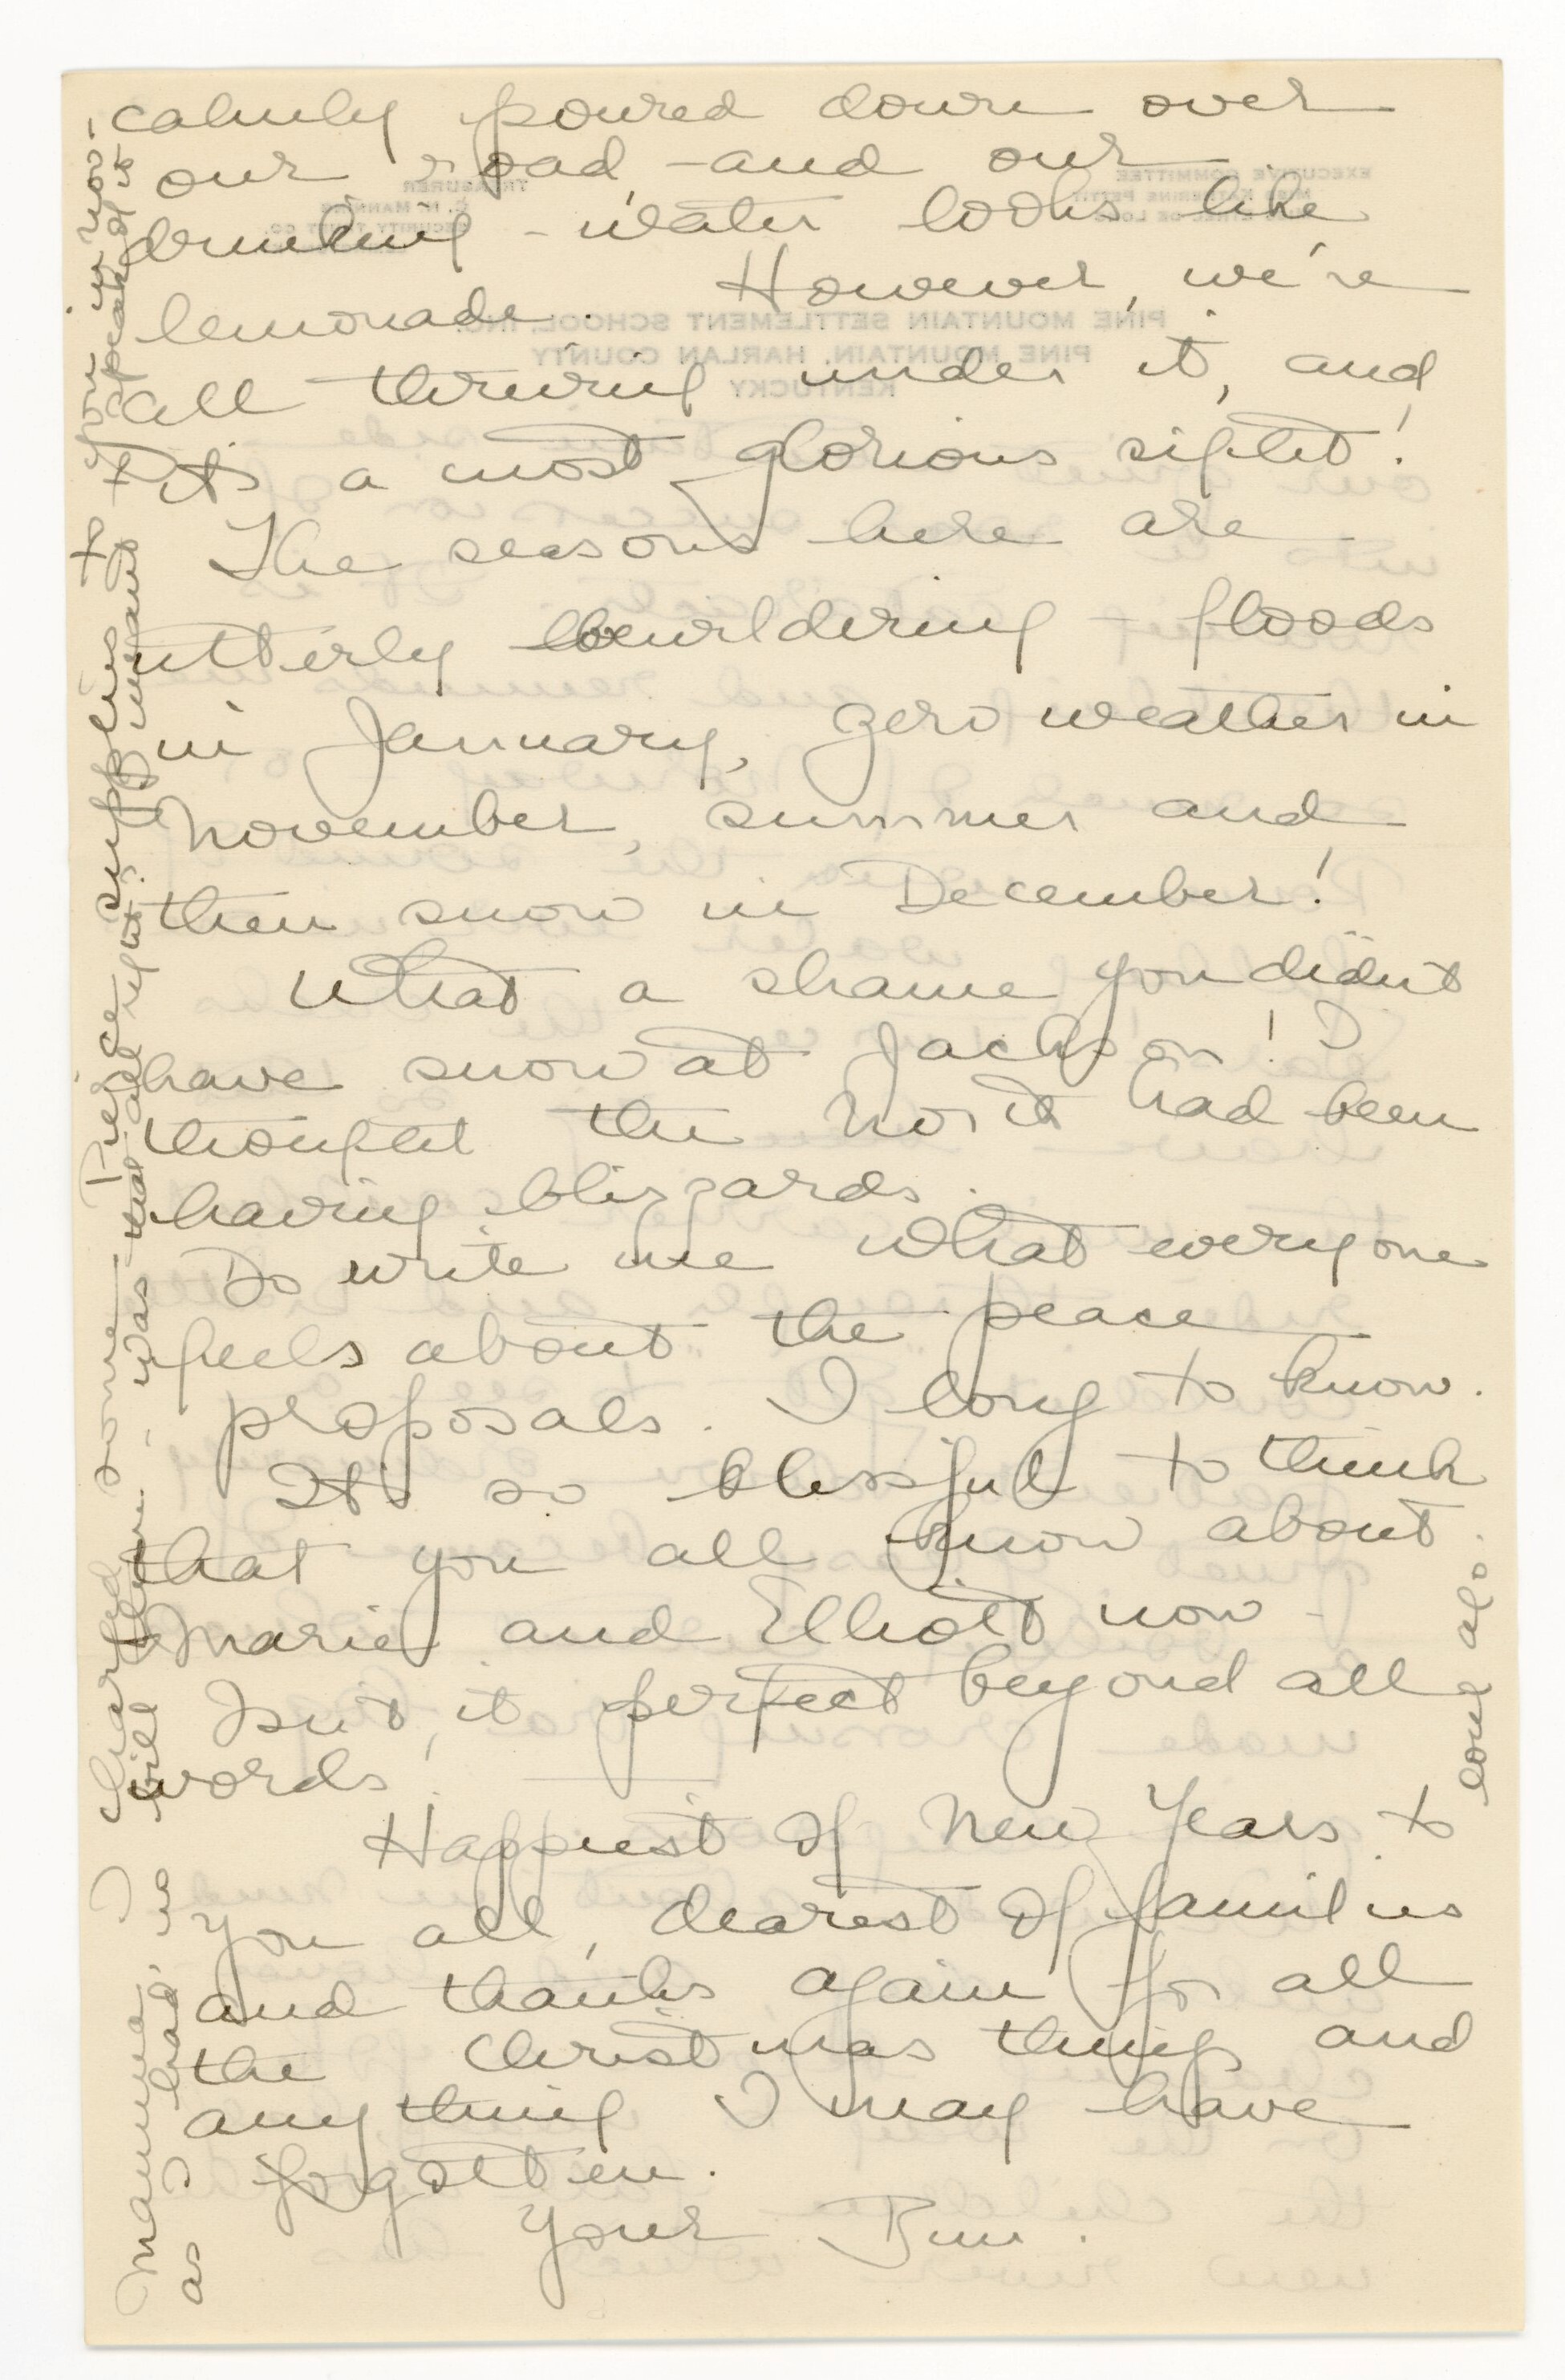 calmly poured down over
our road, and our
drinking-water looks like
lemonade. However, we're
all thriving under it, and
it's a most glorious sight!
The seasons here are
utterly bewildering - floods
in January, zero weather in
November, summer and
then snow in December!
What a shame you didn't
have snow at Jackson! I
thought the North had been
having blizzards.
Do write me what everyone
feels about the peace
proposals. I long to know.
It's so blessful to think
that you all know about
Marie and Elliott now -
Isn't it perfect beyond all
words!
Happiest of New Years to
you all, dearest of families
and thanks again for all
the Christmas things and
anything I may have
forgotten.
Your Bun.
Mamma, I charged some Pierce supplies to you in Nov.
as I had no bill then - was that all right? I meant to speak of it
long ago.
EXECUTIVE COMMITTEE
MISS KATHERINE PETTIT
TREASURER
C. N. MANNING
SECURITY TRUST CO.
PINE MOUNTAIN SETTLEMENT SCHOOL, INC.
PINE MOUNTAIN, HARLAN COUNTY
KENTUCKY